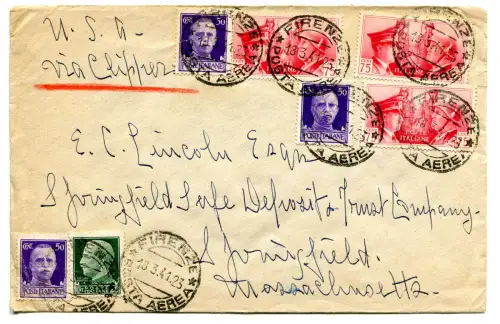 U.S.A.
via Clipper
CENT 50
POSTE ITALIANE
75
POSTE ITALIANE
75
ITALIANE
75
FIRENZE
POSTA AEREA
18.3.41
E. C. Lincoln Esqre
Springfield Safe Deposit & Trust Company
Springfield.
Massachusetts
CENT 50
POSTE ITALIANE
FIRENZE
18.3.41.23
POSTA AEREA